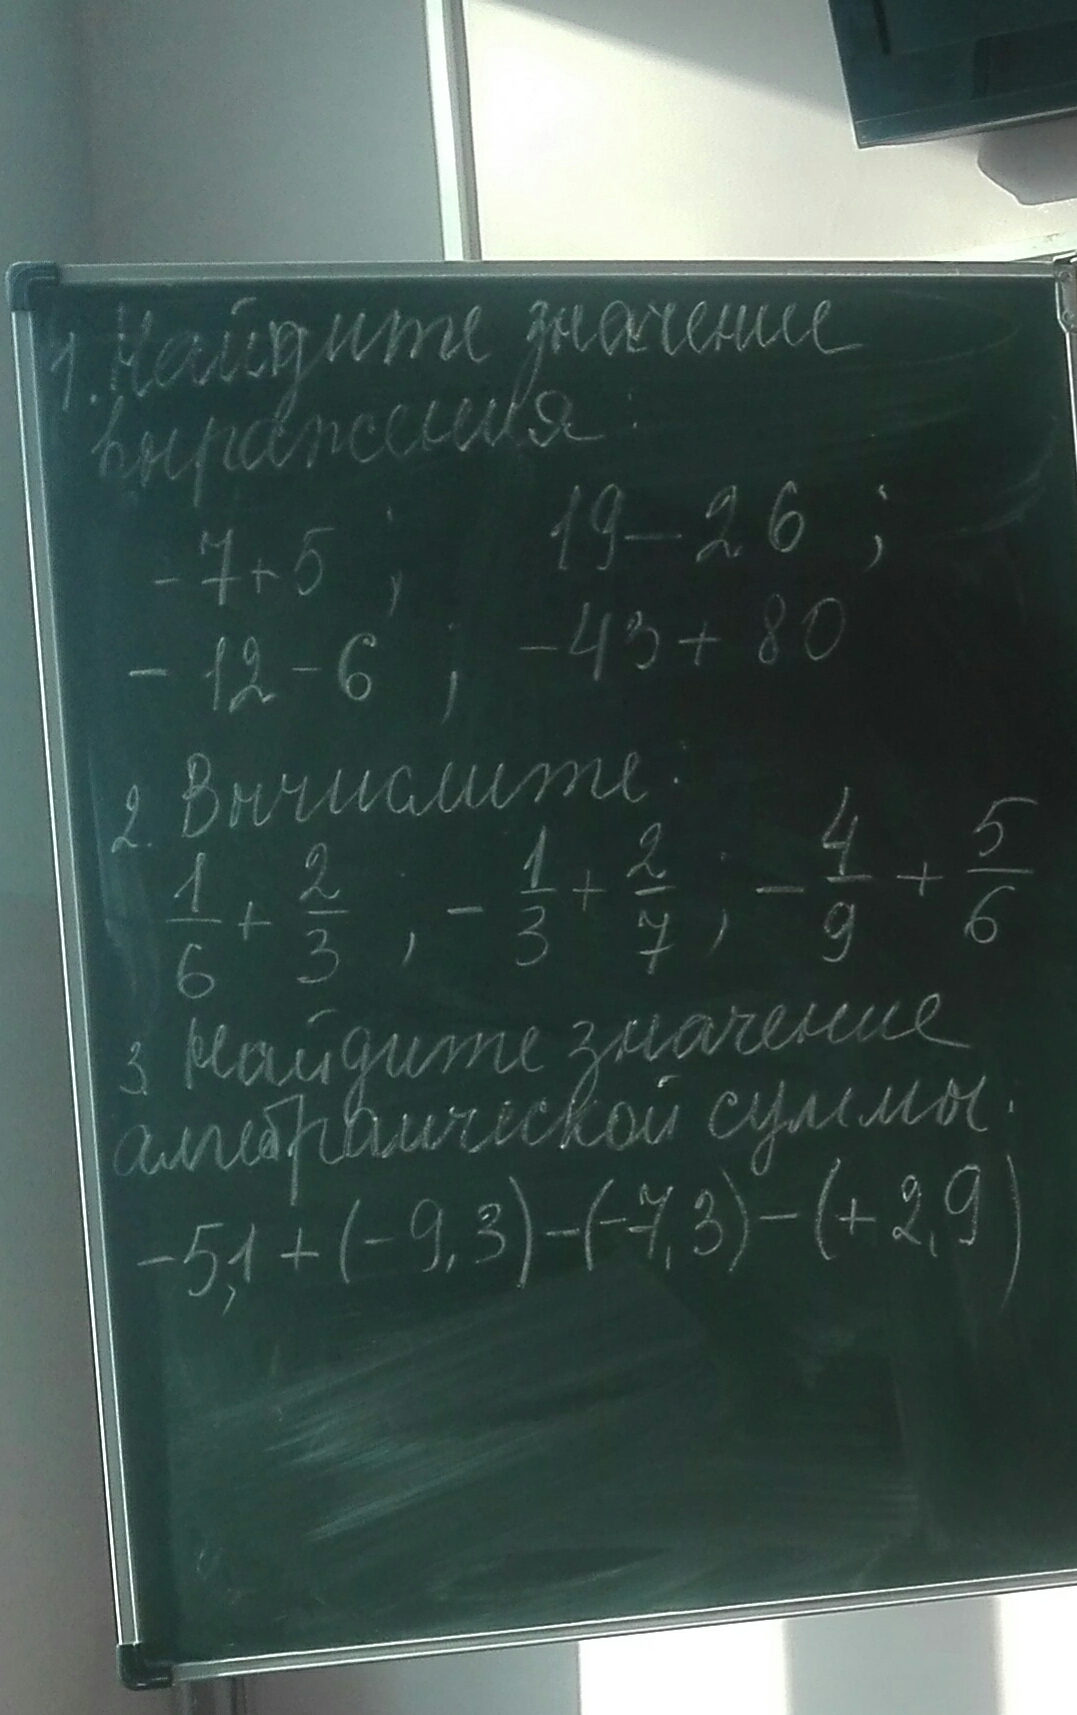 1. Найдите значение
выражения:
-7+5 ; 19-26 ;
-12-6 ; -43+80
2. Вычислите:
1/6 + 2/3 ; -1/3 + 2/7 ; -4/9 + 5/6
3. Найдите значение
алгебраической суммы:
-5,1+(-9,3)-(-7,3)-(+2,9)